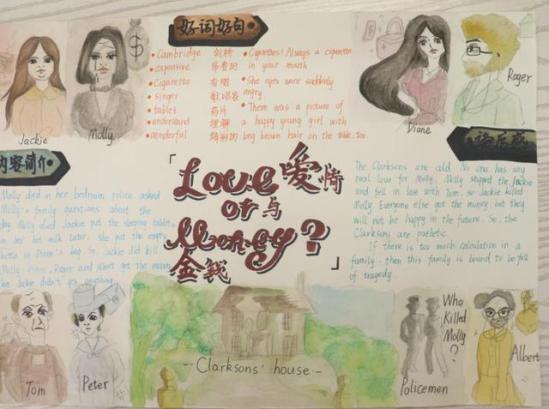 好词好句
Cambridge 剑桥
expensive 昂贵的
Cigarette 香烟
singer 歌唱家
tablet 药片
understand 理解
wonderful
Cigarettes! Always a cigarette
in your mouth
She eyes were suddenly
angry
There was a picture of
a happy young girl with
long brown hair on the table, too.
Jackie
Molly
Diane
Roger
内容简介
Molly died in her bedroom. police asked
Molly's family questions about the
day Molly died. Jackie put the sleeping tablets
in her hot milk later. She put the empty
in Diane's bag. So, Jackie did kill
Molly. Diane, Roger and Albert got the money
Jackie didn't get anything
Love 爱情
or 与
Money?
金钱
读后感
The Clarksons are cold. No one has any
real love for Molly. Molly stopped the Jackie
and fell in love with Tom, so Jackie killed
Molly. Everyone else got the money but they
will not be happy in the future. So, the
Clarksons are pathetic.
If there is too much calculation in a
family. then this family is bound to be full
of tragedy
Tom
Peter
- Clarksons' house -
Policemen
Who
Killed
Molly
?
Albert